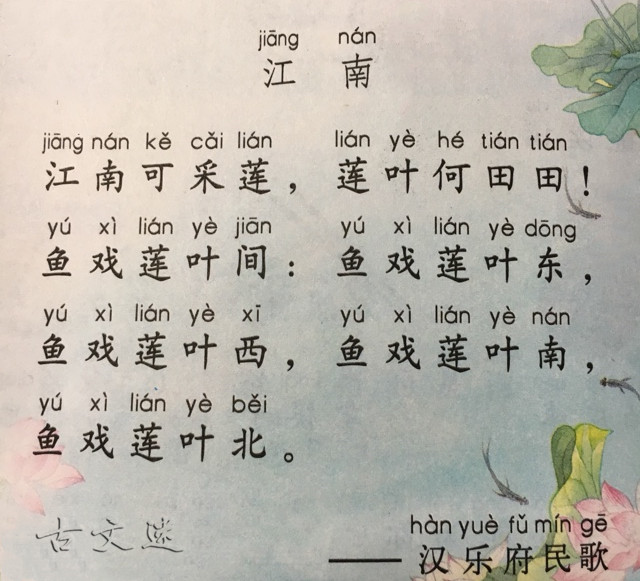 jiāng nán
江 南
jiāng nán kě cǎi lián lián yè hé tián tián
江南可采莲，莲叶何田田！
yú xì lián yè jiān yú xì lián yè dōng
鱼戏莲叶间：鱼戏莲叶东，
yú xì lián yè xī yú xì lián yè nán
鱼戏莲叶西，鱼戏莲叶南，
yú xì lián yè běi
鱼戏莲叶北。
古文迷
hàn yuè fǔ mín gē
——汉乐府民歌